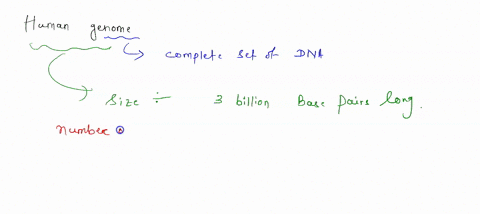 Human genome
Complete set of DNA
Size ÷ 3 billion Base pairs long.
number